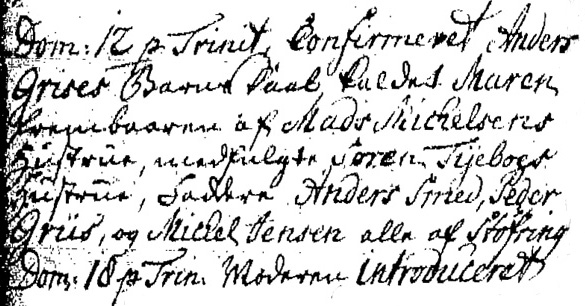 Dom: 12 p Trinit, Confirmeret Anders
Grises Barns Daab, kaldes Maren
frembaaren af Mads Michelsens
Hustrue, medfulgte, Søren Tijebogs
Hustrue, Faddere Anders Smed, Peder
Griis, og Michel Jensen alle af Støfring
Dom: 18 p Trin. Moderen introduceret